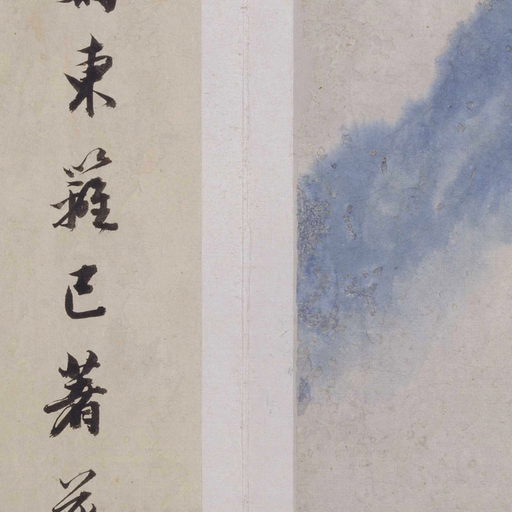 東籬已著